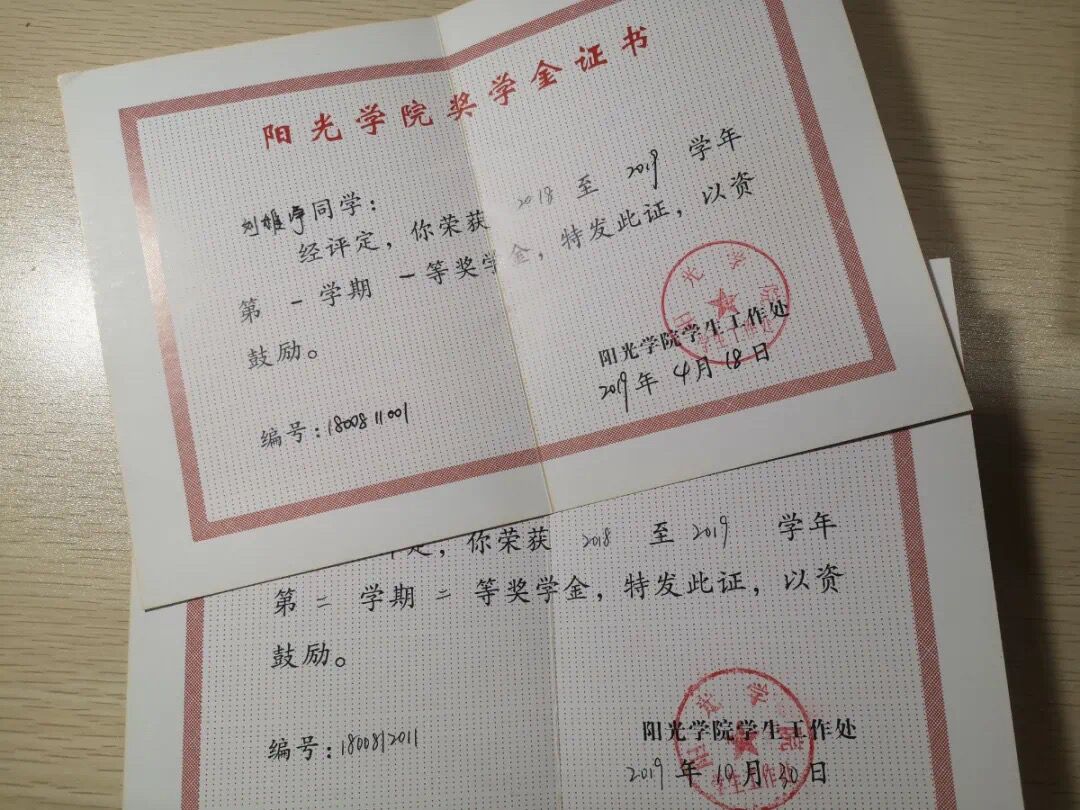 阳光学院奖学金证书
刘雄宇同学：
经评定，你荣获 2018 至 2019 学年
第 一 学期 一 等奖学金，特发此证，以资
鼓励。
阳光学院
学生工作处
阳光学院学生工作处
2019 年 4 月 18 日
编号：1800811001
定，你荣获 2018 至 2019 学年
第 二 学期 二 等奖学金，特发此证，以资
鼓励。
阳光学院
学生工作处
阳光学院学生工作处
2019 年 10 月 30 日
编号：1800812011